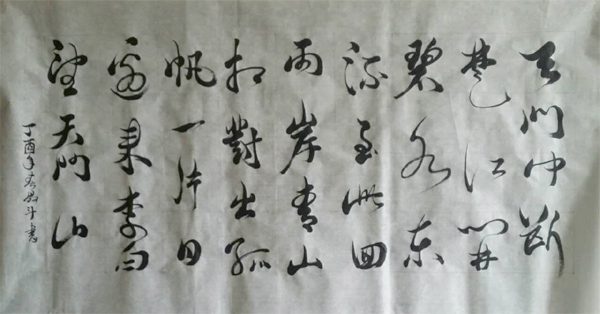 天門中斷
楚江開
碧水东
流至此回
两岸青山
相對出孤
帆一片日
邊来李白
望天門山
丁酉年春 斗書